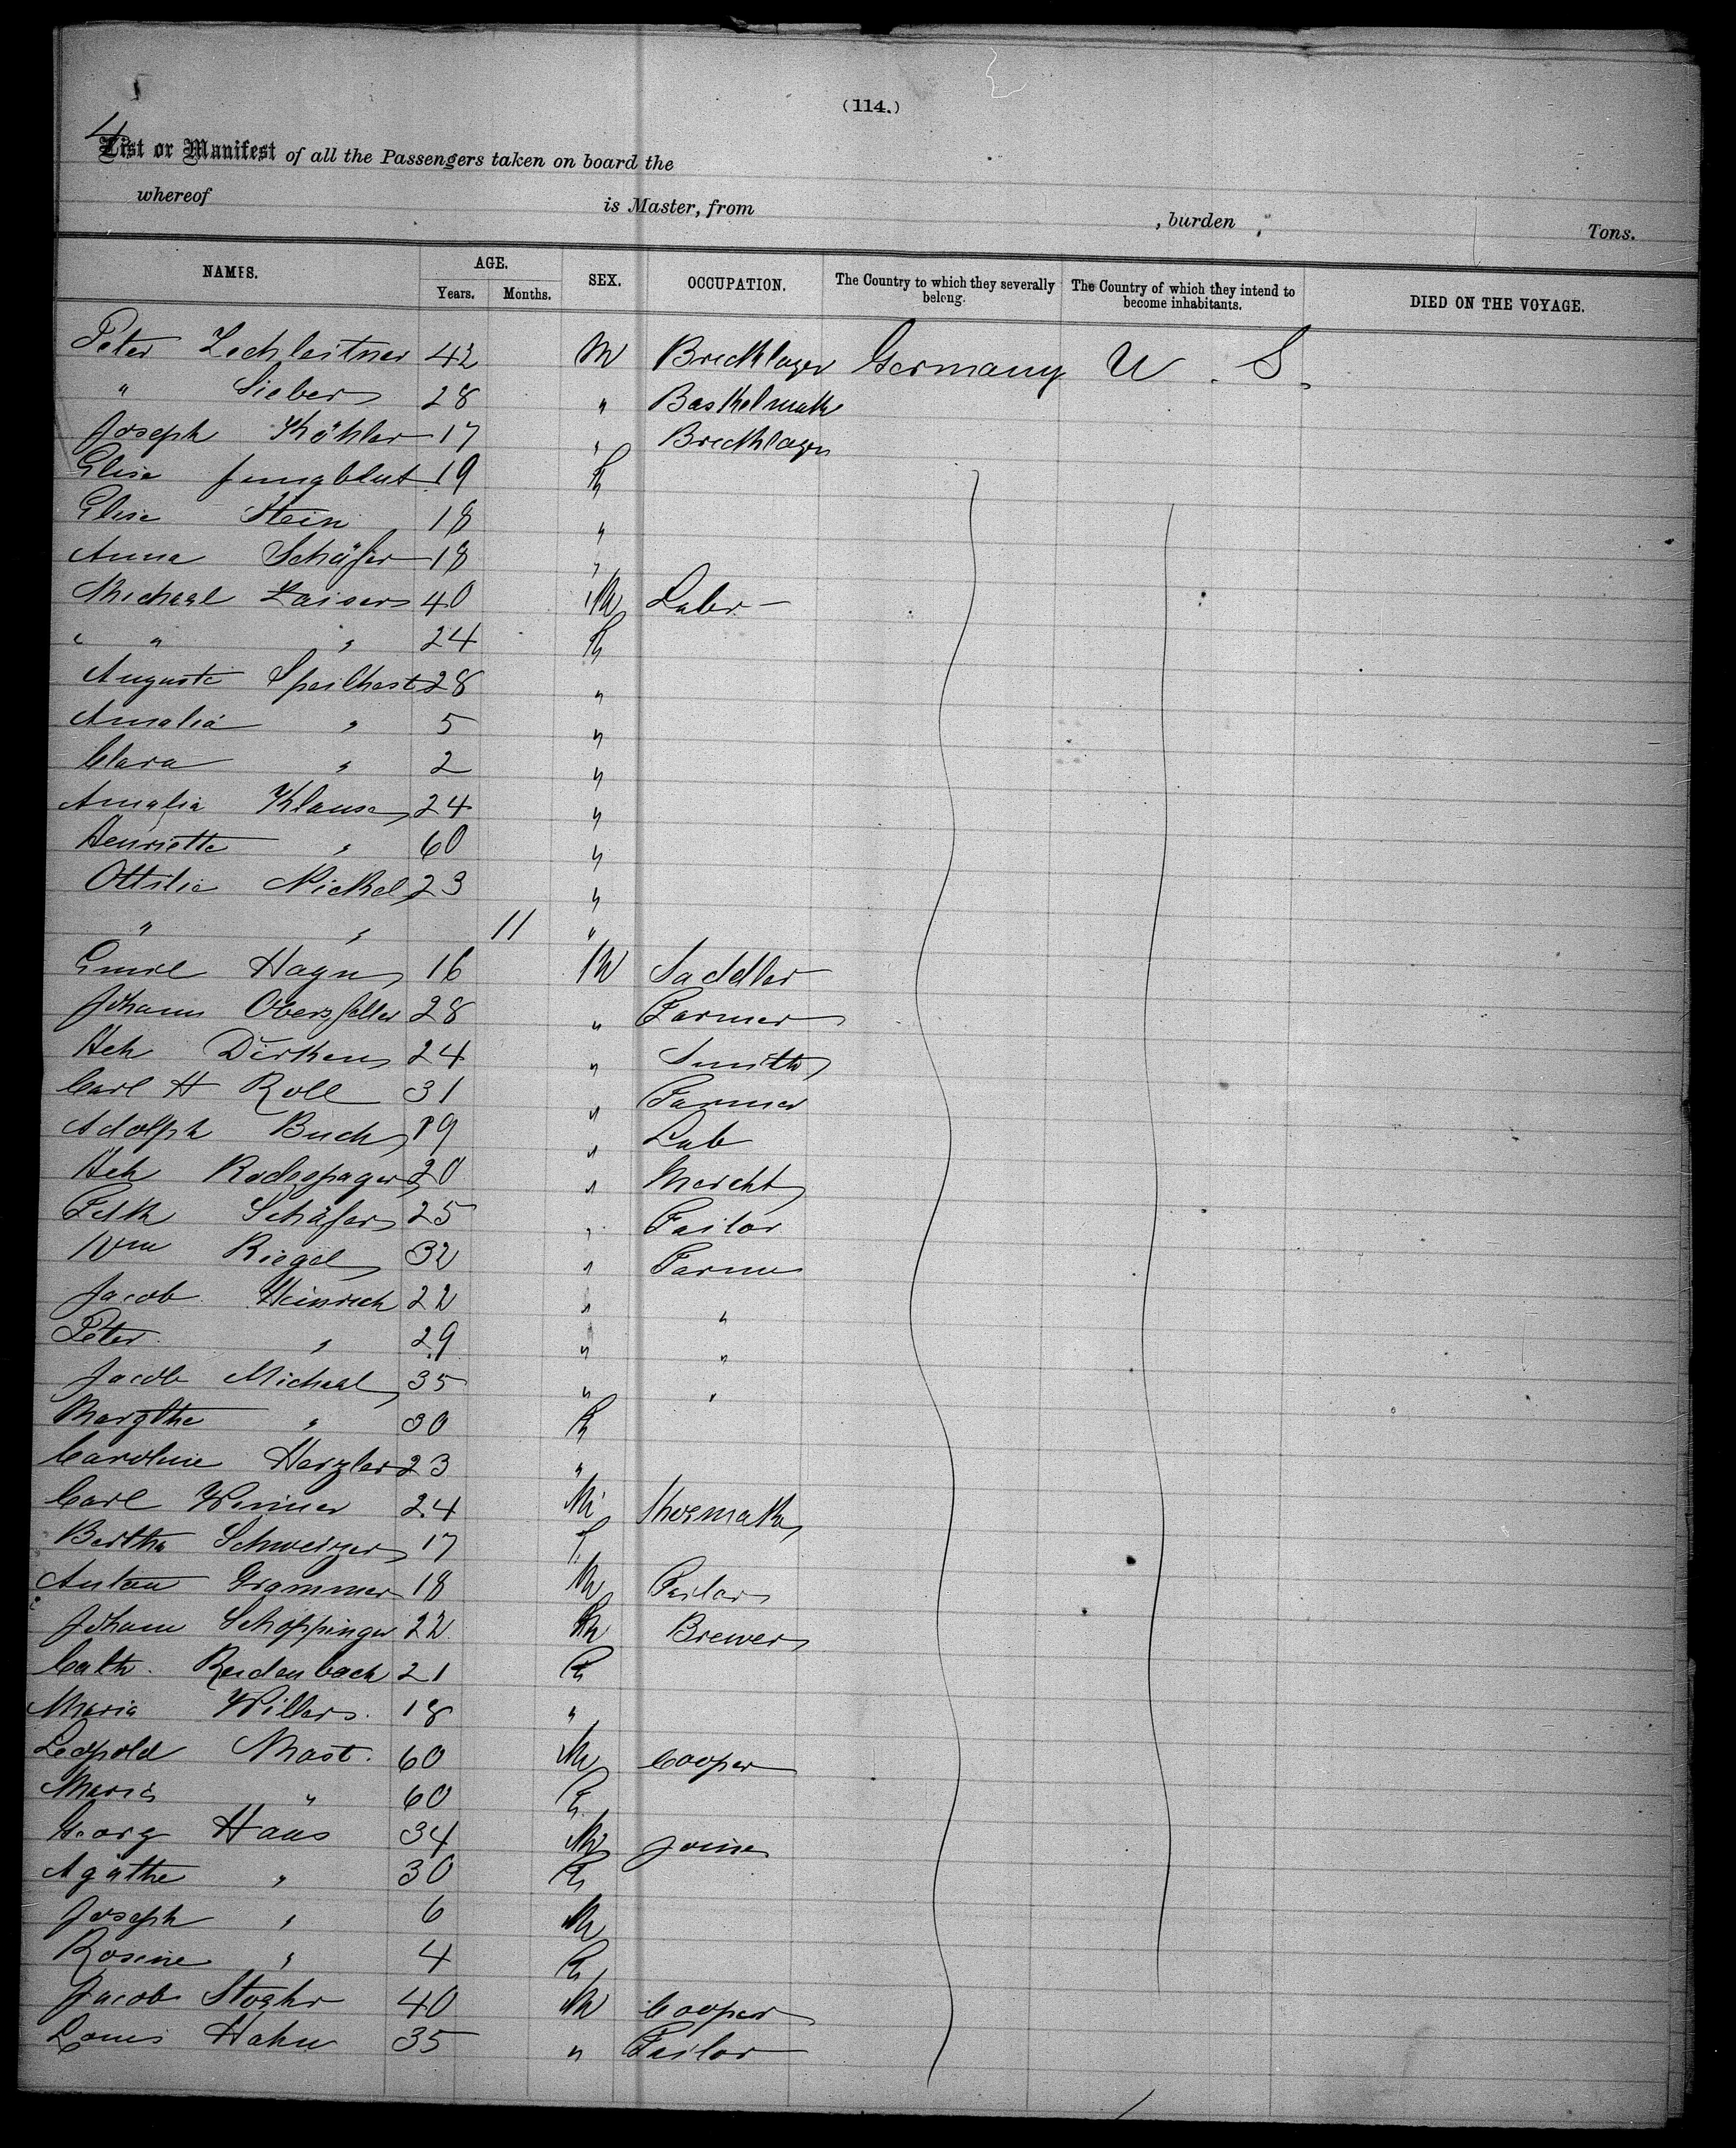 (114.)
4
List or Manifest of all the Passengers taken on board the
whereof is Master, from , burden , Tons.
NAMES. AGE. SEX. OCCUPATION. The Country to which they severally belong. The Country of which they intend to become inhabitants. DIED ON THE VOYAGE.
Years. Months.
Peter Lechleitner 42 M Bricklayer Germany U. S.
" Siebers 28 " Basketmak
Joseph Köhler 17 " Bricklayer
Elise Jungblut 19 F
Elise Stein 18 "
Anna Schäfer 18 "
Michael Kaiser 40 M Labr
" " " 24 F
Auguste 28 "
Amalia " 5 "
Clara " 2 "
Amalia Klause 24 "
Henriette " 60 "
Ottilie Nickel 23 "
" " 11 "
Emil Hagn 16 M Saddler
Johann Obersfeller 28 " Farmer
Hch Dirken 24 " Smith
Carl H Roll 31 " Farmer
Adolph Buch 19 " Lab
Hch 20 " Mercht
Fdk Schäfer 25 " Tailor
Wm Riegel 32 " Farme
Jacob Heinrich 22 " "
Peter " 29 " "
Jacob Michael 35 " "
Margthe " 30 F
Caroline Herzler 23 "
Carl Wimmer 24 M Shoemak
Bertha Schweizer 17 F
Anton Grammer 18 M Tailor
Johann Schoppinger 22 M Brewer
Cath. Reidenbach 21 F
Maria Willers. 18 "
Leopold Mast. 60 M Cooper
Maria " 60 F
Georg Haas 34 M Joiner
Agathe " 30 F
Joseph " 6 M
Rosine " 4 F
Jacob Stoehr 40 M Cooper
Louis Hahn 35 " Tailor